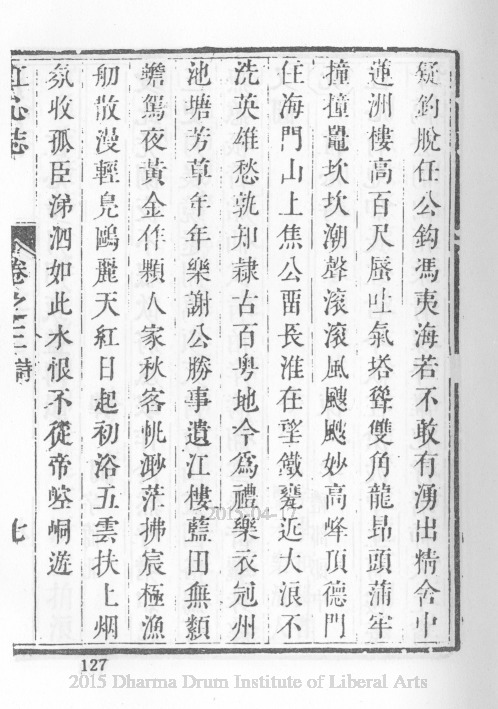 疑釣脫任公鈎馮夷海若不敢有湧出精舍中
蓮洲樓高百尺蜃吐氣塔聳雙角龍昂頭蒲牢
撞撞鼉坎坎潮聲滾滾風颼颼妙高峰頂德門
住海門山上焦公畱長淮在望鐵甕近大浪不
洗英雄愁孰知隷古百粤地今爲禮樂衣冠州
池塘芳草年年樂謝公勝事遺江樓藍田無纇
蟾駕夜黃金作顆人家秋客帆渺茫拂宸極漁
舠散漫輕鳧鷗麗天紅日起初浴五雲扶上烟
氛收孤臣涕泗如此水恨不從帝崆峒遊
江心志
卷之三
詩
七
2015-04-17
127
2015 Dharma Drum Institute of Liberal Arts